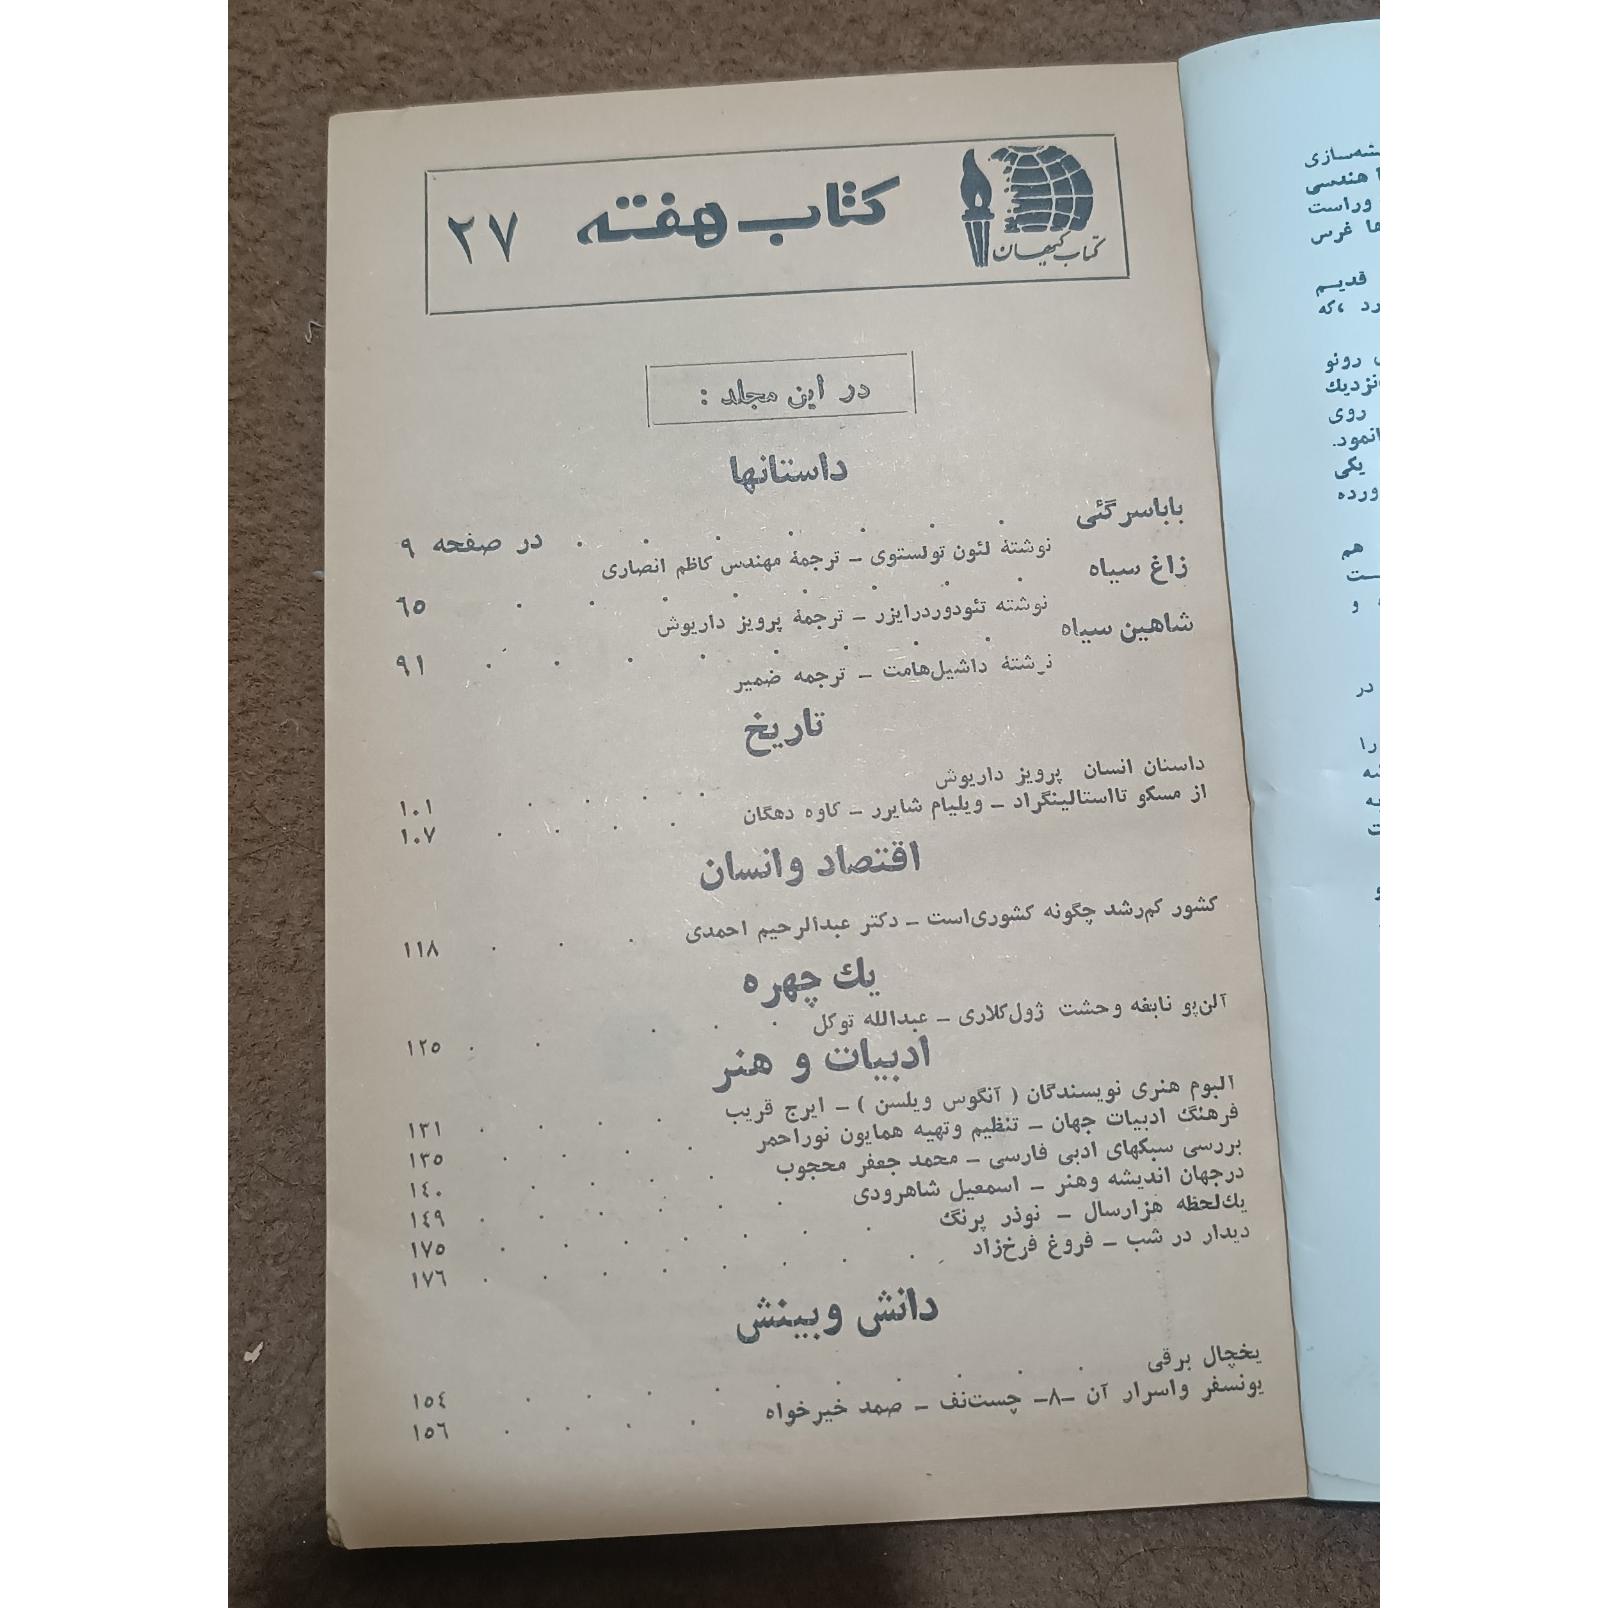 کتاب هفته ۲۷
کتاب کیهان
در این مجلد :
داستانها
باباسرگئی . . . . . . . در صفحه ۹
نوشتهٔ لئون تولستوی – ترجمهٔ مهندس کاظم انصاری
زاغ سیاه . . . . . . . ۶۵
نوشته تئودوردرایزر – ترجمهٔ پرویز داریوش
شاهین سیاه . . . . . . . ۹۱
نوشتهٔ داشیل‌هامت – ترجمه ضمیر
تاریخ
داستان انسان پرویز داریوش . . . . ۱۰۱
از مسکو تااستالینگراد – ویلیام شایرر – کاوه دهگان . . . . ۱۰۷
اقتصاد وانسان
کشور کم‌رشد چگونه کشوری‌است – دکتر عبدالرحیم احمدی . . . ۱۱۸
یك چهره
آلن‌پو نابغه وحشت ژول‌کلاری – عبدالله توکل . . . . . ۱۲۵
ادبیات و هنر
آلبوم هنری نویسندگان ( آنگوس ویلسن ) – ایرج قریب . . . . ۱۳۱
فرهنگ ادبیات جهان – تنظیم وتهیه همایون نوراحمر . . . . ۱۳۵
بررسی سبکهای ادبی فارسی – محمد جعفر محجوب . . . . ۱۴۰
درجهان اندیشه وهنر – اسمعیل شاهرودی . . . . . ۱۴۹
یك‌لحظه هزارسال – نوذر پرنگ . . . . . . ۱۷۵
دیدار در شب – فروغ فرخ‌زاد . . . . . . . . ۱۷۶
دانش وبینش
یخچال برقی . . . . . . . . . ۱۵۴
یونسفر واسرار آن –۸– چست‌نف – صمد خیرخواه . . . . ۱۵۶
هندسی
وراست
ها غرس
قدیـم
رونو
روی
یکی
هم
و
در
را